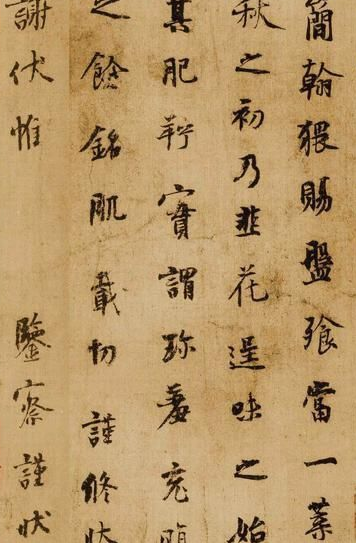 簡翰猥賜盤飧當一葉
秋之初乃韭花逞味之始
其肥羜實謂珍羞充腹
之餘銘肌載切謹修狀
謝伏惟 鑒察謹狀